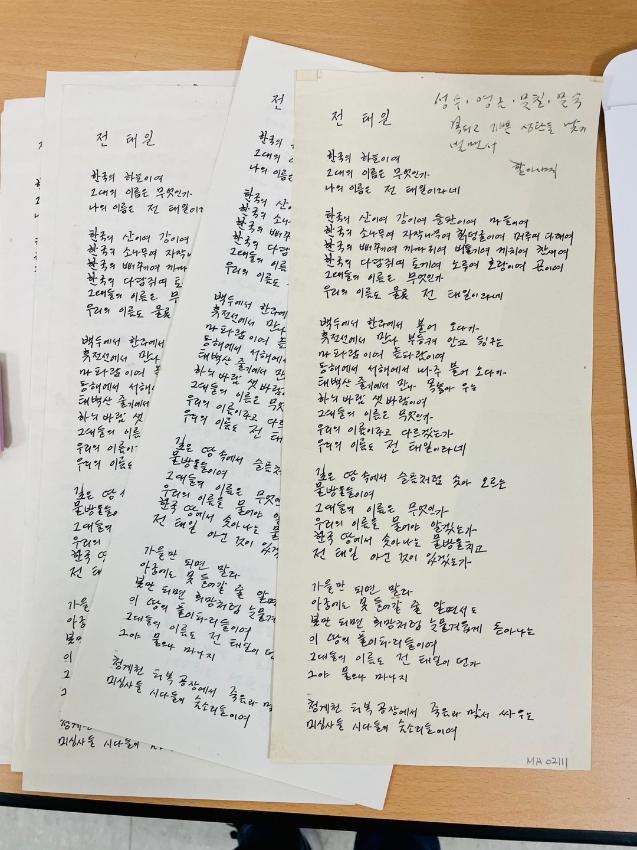 전 태일
성수·영근·문칠·문숙
복되고 기쁜 성탄을 맞기
빌면서
할아버지
한국의 하늘이여
그대의 이름은 무엇인가
나의 이름은 전 태일이라네
한국의 산이여 강이여 들판이여 마을이여
한국의 소나무여 자작나무여 칡덩굴이여 머루여 다래여
한국의 뻐꾸기여 까마귀여 비둘기여 까치여 참새여
한국의 다람쥐여 토끼여 노루여 호랑이여 곰이여
그대들의 이름은 무엇인가
우리의 이름도 물론 전 태일이라네
백두에서 한라에서 불어 오다가
휴전선에서 만나 부둥켜 안고 뒹구는
마파람이여 높다람이여
동해에서 서해에서 마주 불어 오다가
태백산 줄기에서 만나 목놓아 우는
하늬바람 샛바람이여
그대들의 이름은 무엇인가
우리의 이름이라고 다르겠는가
우리의 이름도 전 태일이라네
깊은 땅 속에서 슬픔처럼 솟아 오르는
물방울들이여
그대들의 이름은 무엇인가
우리의 이름을 물어야 알겠는가
한국 땅에서 솟아나는 물방울치고
전 태일 아닌 것이 있겠는가
가을만 되면 말라
아궁에도 못 들어갈 줄 알면서도
봄만 되면 희망처럼 눈물겨웁게 돋아나는
이 땅의 풀이파리들이여
그대들의 이름도 전 태일이던가
그야 물으나 마나지
청계천 피복 공장에서 죽음과 맞서 싸우는
미싱사들 시다들의 숨소리들이여
MA 0211